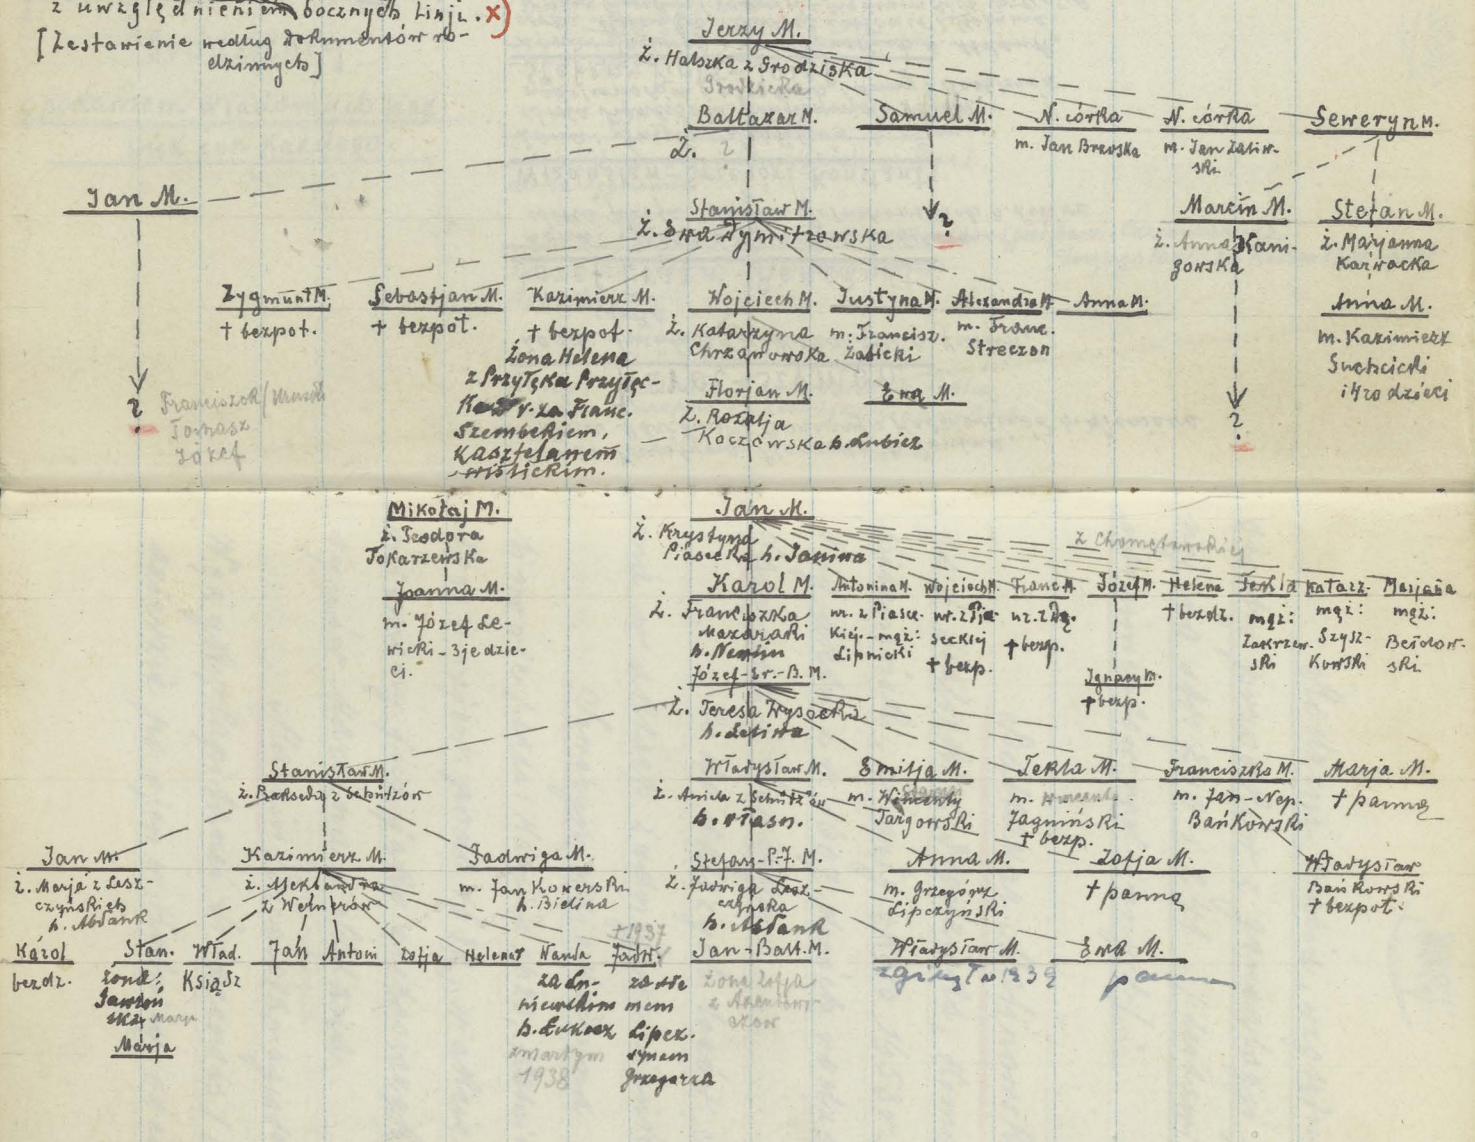 z uwzględnieniem bocznych Linji. x)
[Zestawienie według dokumentów ro-
dzinnych]
Jerzy M.
ż. Halszka z Grodziska
Grodzicka
Baltazar M.
Ż. ?
Samuel M.
?
N. córka
m. Jan Brzoska
N. córka
m. Jan Zaliw-
ski
Seweryn M.
Jan M.
?
Franciszek
Tomasz
Józef
Stanisław M.
Ż. Ewa Dymitrowska
Marcin M.
ż. Anna Kani-
gowska
?
Stefan M.
ż. Marjanna
Karwacka
Anna M.
m. Kazimierz
Suchcicki
i 4ro dzieci
Zygmunt M.
+ bezpot.
Sebastjan M.
+ bezpot.
Kazimierz M.
+ bezpot.
Żona Helena
z Przyłęka Przyłęc-
v. za Franc.
Szembekiem,
Kasztelanem
wiślickim.
Wojciech M.
Ż. Katarzyna
Chrzanowska
Justyna M.
m. Francisz.
Żabicki
Alexandra M.
m. Franc.
Streczon
Anna M.
Florjan M.
Ż. Rozalja
Koczowska h. Lubicz
Ewa M.
Mikołaj M.
ż. Teodora
Tokarzewska
Joanna M.
m. Józef Le-
wicki - 3je dzie-
ci.
Jan M.
Ż. Krystyna
Piasecka h. Janina
z Chomętowskiej
Karol M.
Ż. Franciszka
Mazaraki
h. Newlin
Antonina M.
ur. z Piasec-
kiej. - mąż:
Lipnicki
Wojciech M.
ur. z Pia-
seckiej
+ bezp.
Franc. M.
ur. z
+ bezp.
Józef M.
Ignacy M.
+ bezp.
Helena
+ bezdz.
Tekla
mąż:
Zakrzew-
ski
Katarz.
mąż:
Szysz-
kowski
Marjana
mąż:
Beidow-
ski
Józef-Sr.-B. M.
Ż. Teresa Wysocka
Stanisław M.
ż. Prakseda z Schützów
Władysław M.
ż. Aniela z Schütz'ów
h. własn.
Emilja M.
m. Wincenty
Targowski
Tekla M.
m.
Jagniński
+ bezp.
Franciszka M.
m. Jan-Nep.
Bańkowski
Marja M.
+ panną
Jan M.
ż. Marja z Lesz-
czyńskich
h. Abdank
Kazimierz M.
ż. Aleksandra
z Wernerów
Jadwiga M.
m. Jan Kowerski
h. Bielina
Stefan-P.-J. M.
Ż. Jadwiga Lesz-
czyńska
h. Abdank
Anna M.
m. Grzegórz
Lipczyński
Zofja M.
+ panną
Władysław
Bańkowski
+ bezpot.
Karol
bezdz.
Stan.
żona:
Marja
Wład.
Ksiądz
Jan
Antoni
Zofja
Helena
Wanda
za Łu-
niewskim
h. Łukocz
zmarłym
1938
+1937
Jadw.
za
mem
Lipcz.
synem
Grzegorza
Jan-Balt. M.
Żona Zofja
z
Władysław M.
zginął w 1939
Ewa M.
panna